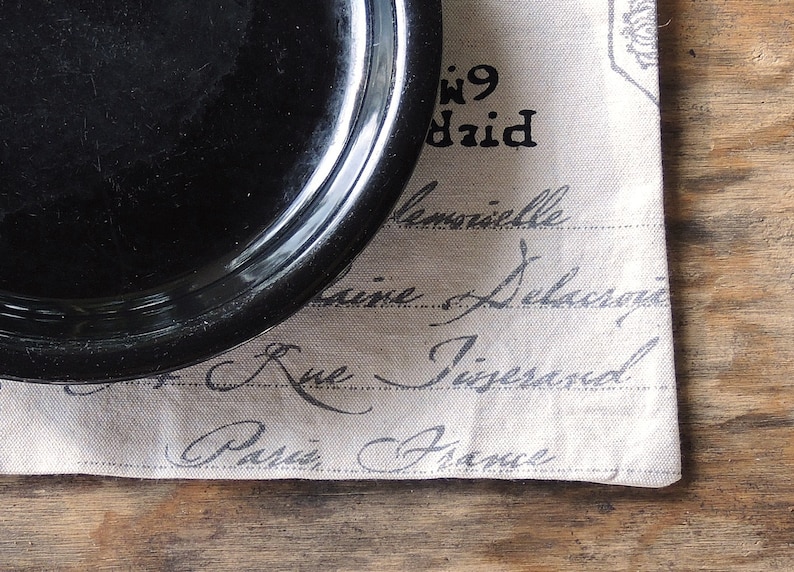 lemoiselle
laine Delacroix
Rue Tisserand
Paris, France